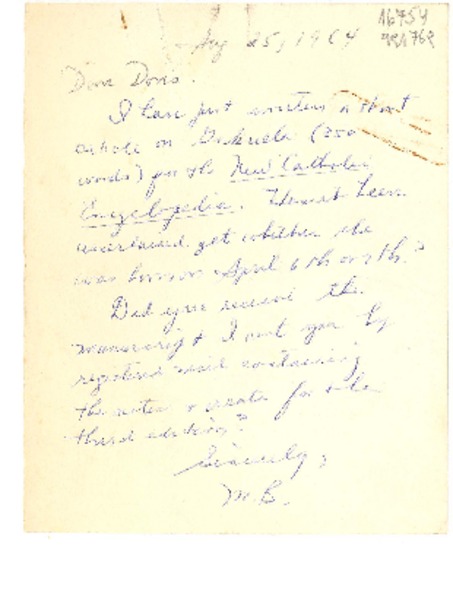 16754
991762
Aug 25, 1964
Dear Doris.
I have just written a short
article on Gabriela (250
words) for the New Catholic
Encyclopedia. Haven't been
yet whether she
was born on April 6th or 7th.?
Did you receive the
manuscript I sent you by
registered mail containing
the notes & for the
third edition?
Sincerely,
M.B.